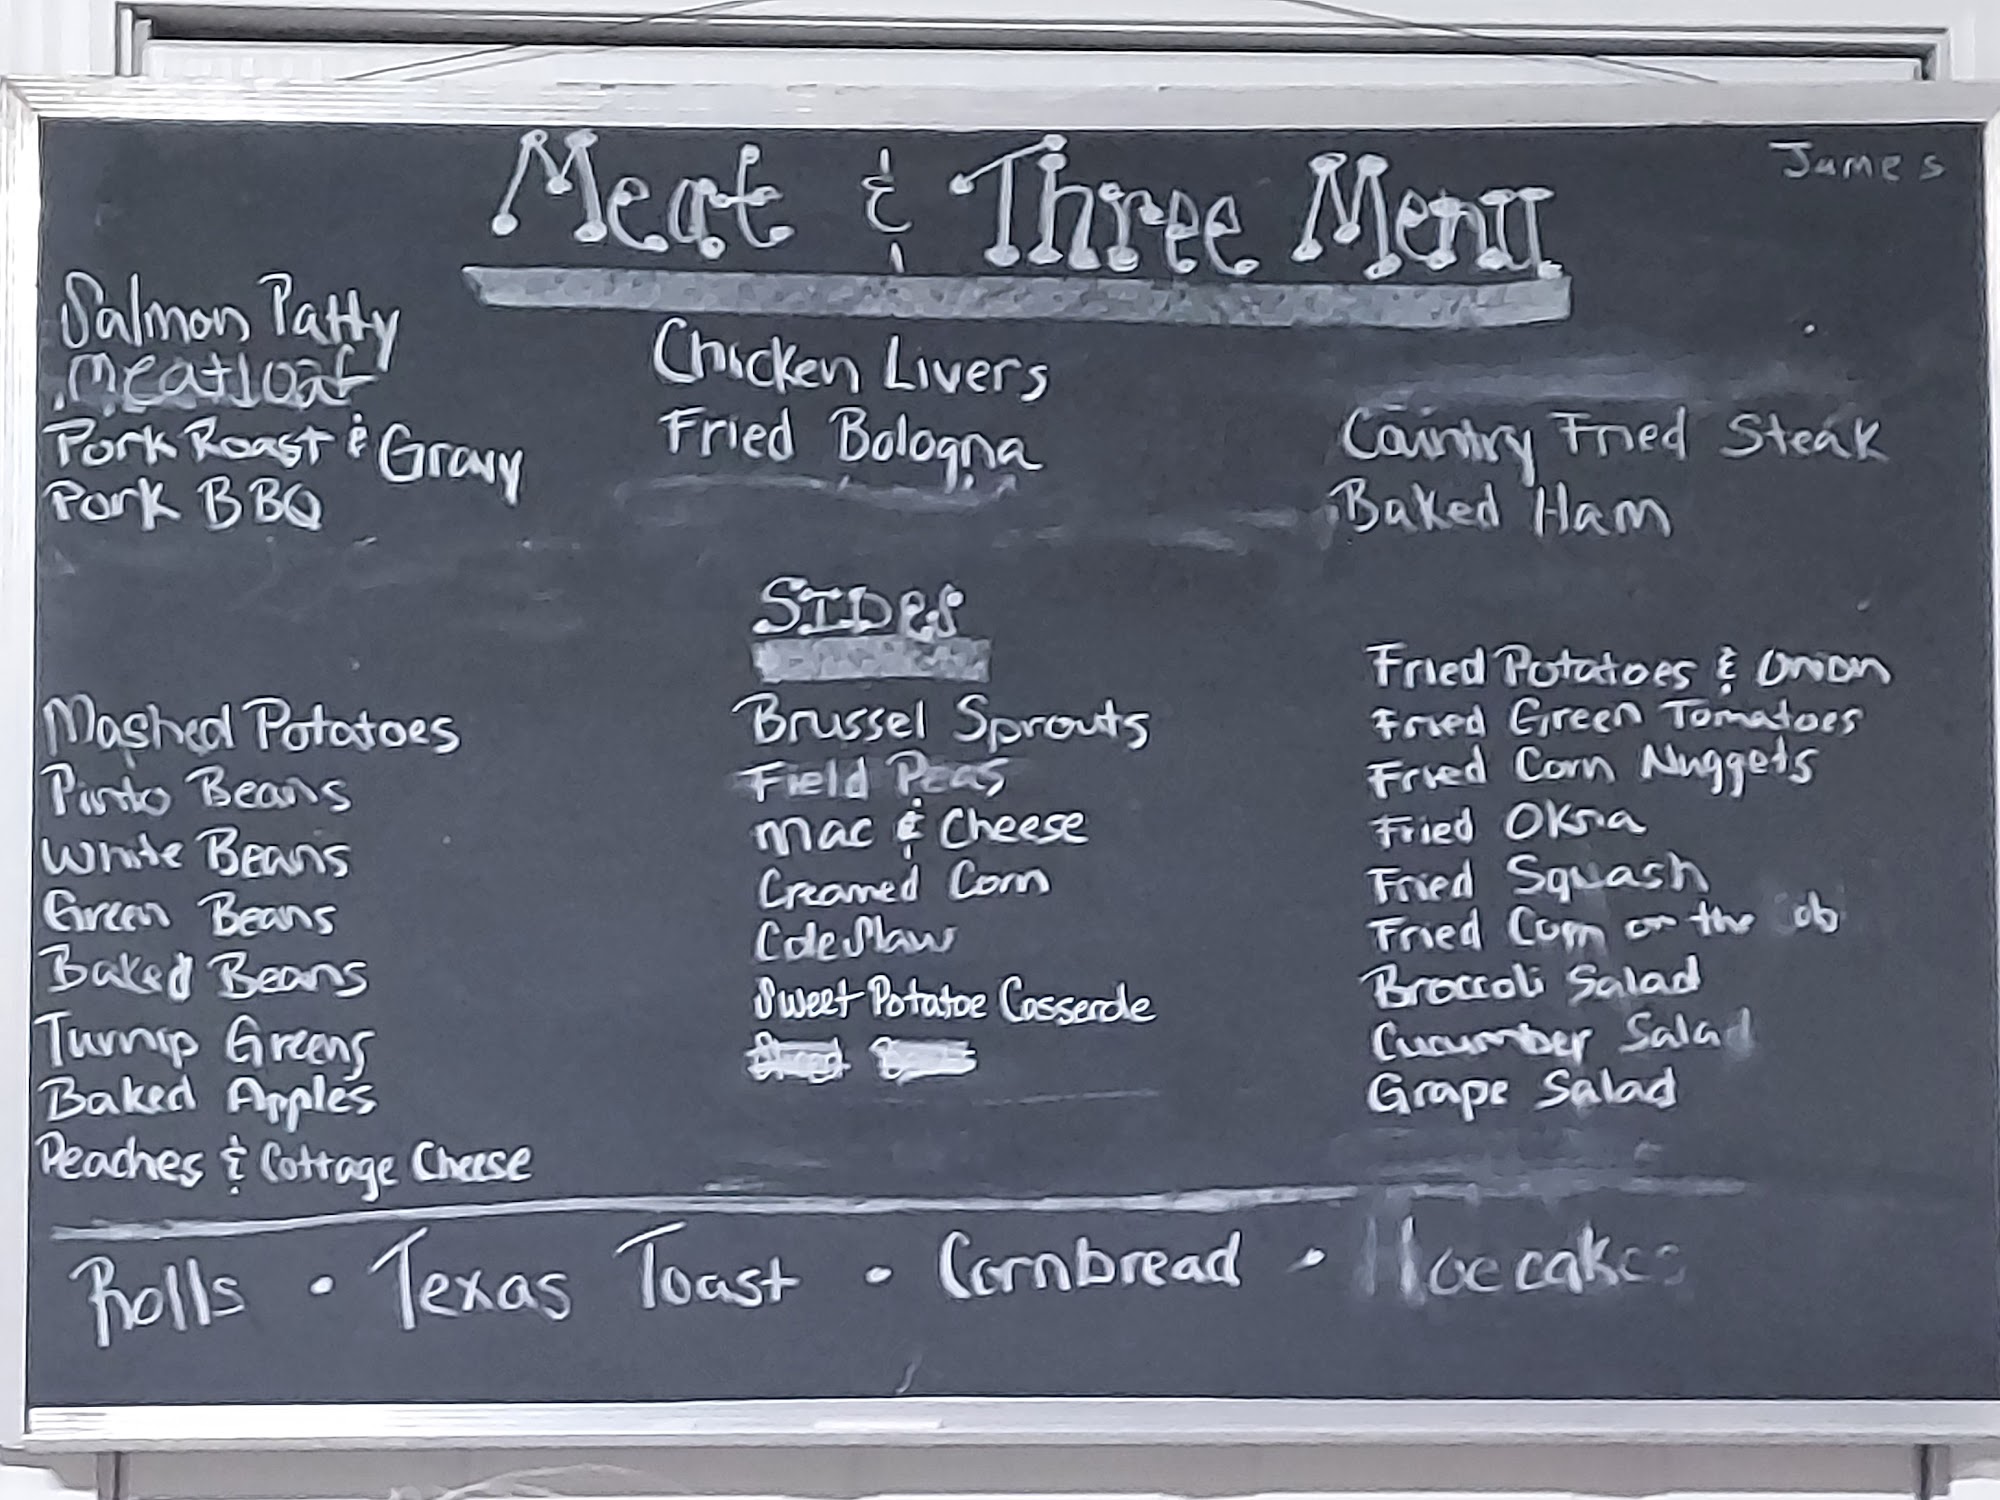 James
Meat & Three Menu
Salmon Patty
Meatloaf
Pork Roast & Gravy
Pork BBQ
Chicken Livers
Fried Bologna
Country Fried Steak
Baked Ham
SIDES
Mashed Potatoes
Pinto Beans
White Beans
Green Beans
Baked Beans
Turnip Greens
Baked Apples
Peaches & Cottage Cheese
Brussel Sprouts
Field Peas
Mac & Cheese
Creamed Corn
Coleslaw
Sweet Potatoe Casserole
Fried Potatoes & Onion
Fried Green Tomatoes
Fried Corn Nuggets
Fried Okra
Fried Squash
Fried Corn on the ob
Broccoli Salad
Cucumber Salad
Grape Salad
Rolls • Texas Toast • Cornbread • Hoecakes